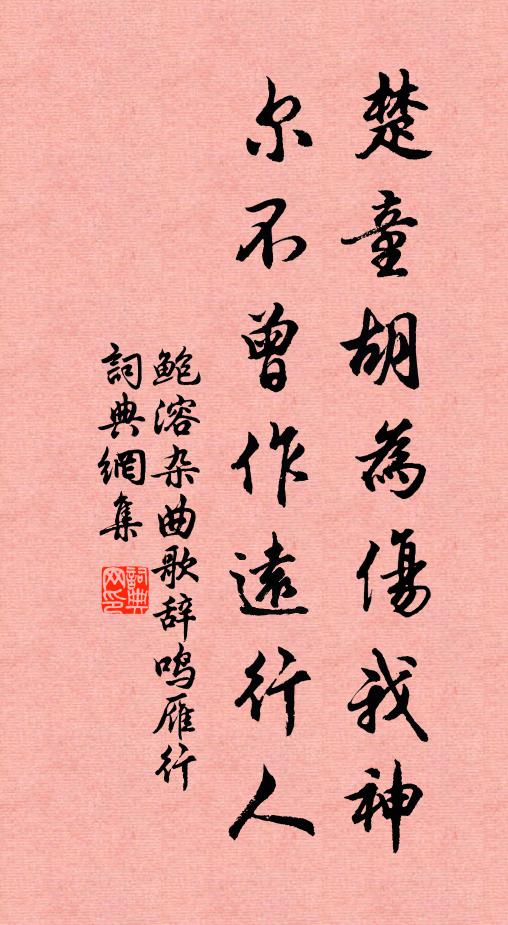 楚童胡為傷我神
尔不曾作遠行人
鲍溶杂曲歌辞鸣雁行
詞典網集
詞典
网印